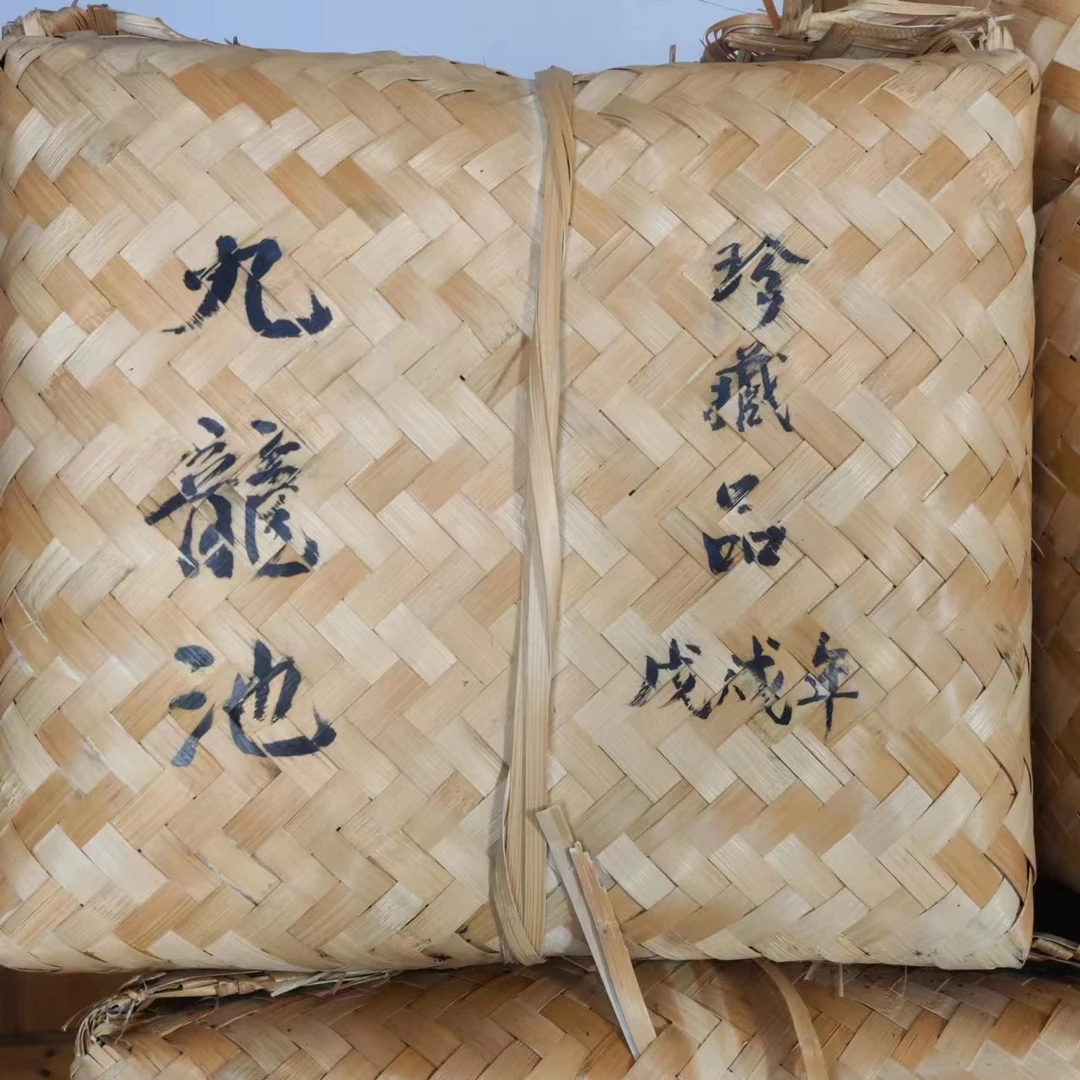 九龍池
珍藏品
戊戌年